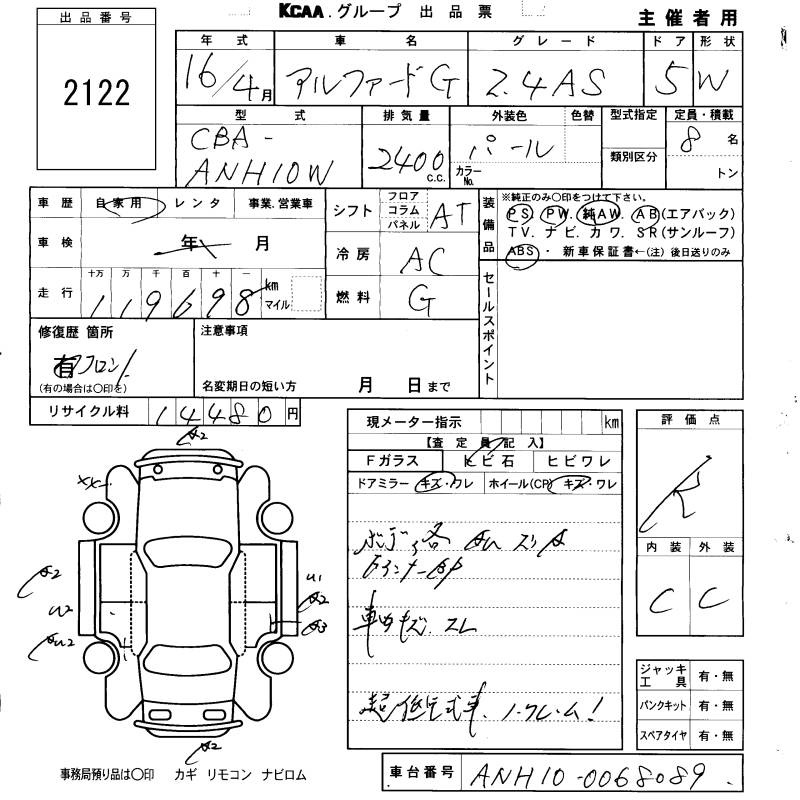 KCAA.グループ 出品票
主催者用
出品番号
2122
年式 車名 グレード ドア 形状
16/4月 アルファードG 2.4AS 5 W
型式 排気量 外装色 色替 型式指定 定員・積載
CBA-
ANH10W
2400 c.c.
パール
カラーNo.
類別区分
8 名
トン
車歴 自家用 レンタ 事業.営業車
車検 年 月
走行 十万 万 千 百 十 一
119698 km
マイル
シフト フロア コラム パネル AT
冷房 AC
燃料 G
装備品
※純正のみ○印をつけて下さい。
PS. PW. 純AW. AB(エアバック)
TV. ナビ. カワ. SR(サンルーフ)
ABS ・ 新車保証書←(注)後日送りのみ
セールスポイント
修復歴 箇所
有 フロント
(有の場合は○印を)
注意事項
名変期日の短い方 月 日まで
リサイクル料 14480 円
現メーター指示 km
【査定員記入】
Fガラス トビ石 ヒビワレ
ドアミラー キズ・ワレ ホイール(CP) キズ・ワレ
ボディ各
車内キズ.スレ
超低年式車、ノークレーム!
評価点
R
内装 外装
C C
ジャッキ
工具 有・無
パンクキット 有・無
スペアタイヤ 有・無
A2
XX
A2
U2
AU2
U1
A2
A3
A2
事務局預り品は○印 カギ リモコン ナビロム
車台番号 ANH10-0068089